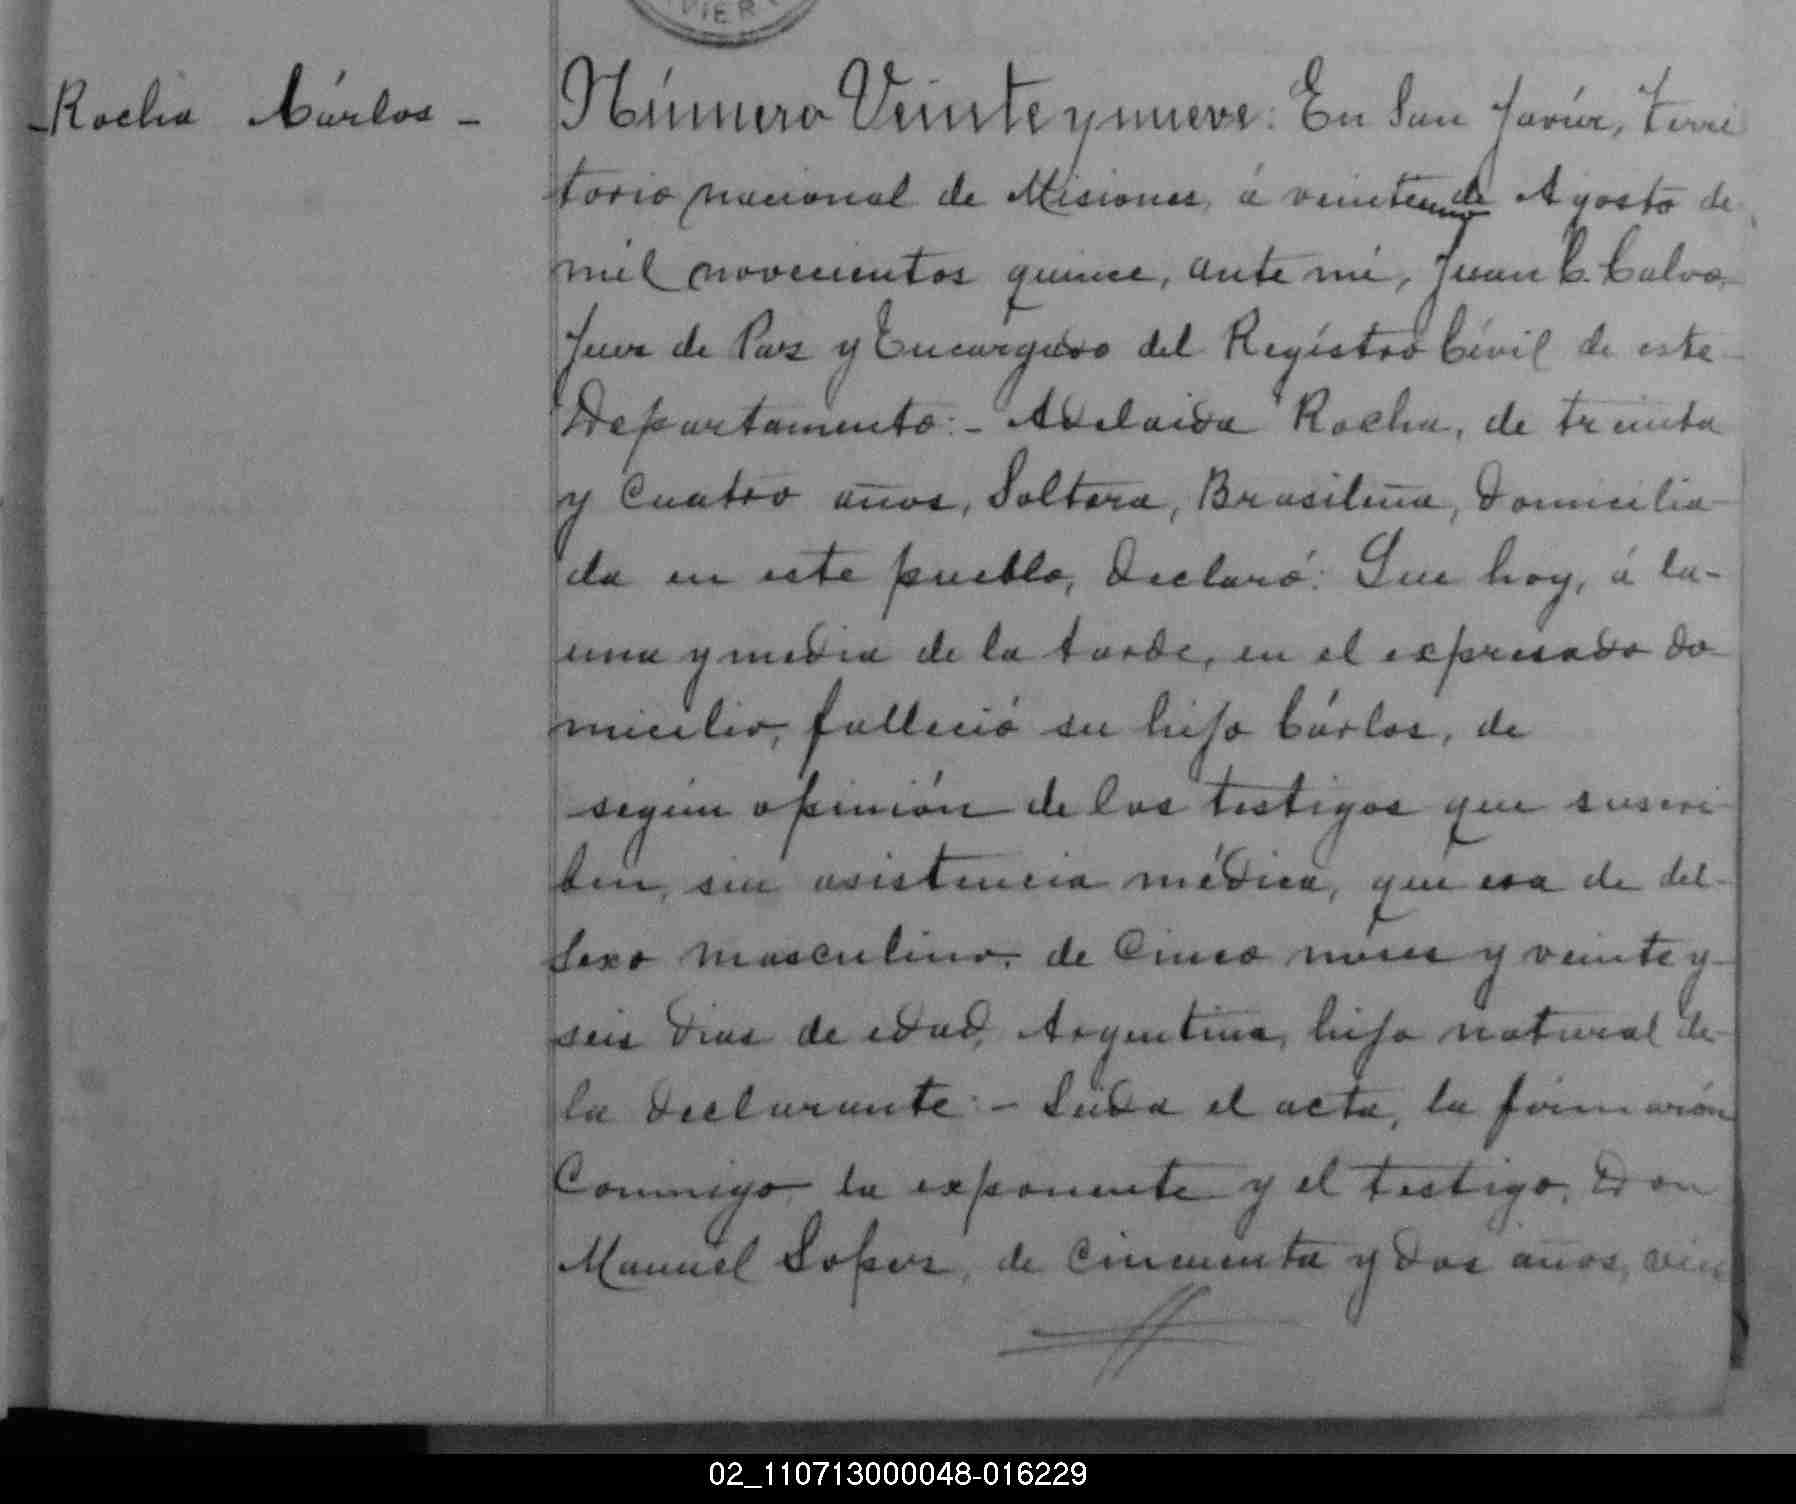 VIER
-Rocha Cárlos-
Número Veinteynueve: En San Javier, Terri
torio nacional de Misiones, á veinteuno de Agosto de
mil novecientos quince, ante mí, Juan C. Calvo,
Juez de Paz y Encargado del Registro Civil de este
Departamento:- Adelaida Rocha, de treinta
y cuatro años, Soltera, Brasileña, domicilia
da en este pueblo, declaró: Que hoy, á la-
una y media de la tarde, en el expresado do
micilio, falleció su hijo Cárlos, de
según opinión de los testigos que suscri
ben, sin asistencia médica, que era de del-
sexo masculino, de cinco meses y veinte y-
seis dias de edad, Argentino, hijo natural de
la declarante:- Leida el acta, la firmarón
Conmigo la exponente y el testigo, Don
Manuel Lopez, de cincuenta y dos años,
02_110713000048-016229